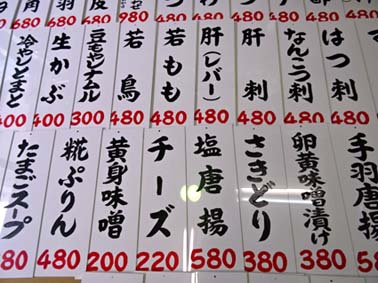 はつ刺
480
なんこつ刺
480
肝刺
480
肝(レバー)
480
若もも
480
若鳥
480
豆もやしナムル
300
生かぶ
400
冷やしとまと
400
手羽唐揚
卵黄味噌漬け
380
さきどり
380
塩唐揚
580
チーズ
220
黄身味噌
200
糀ぷりん
480
たまごスープ